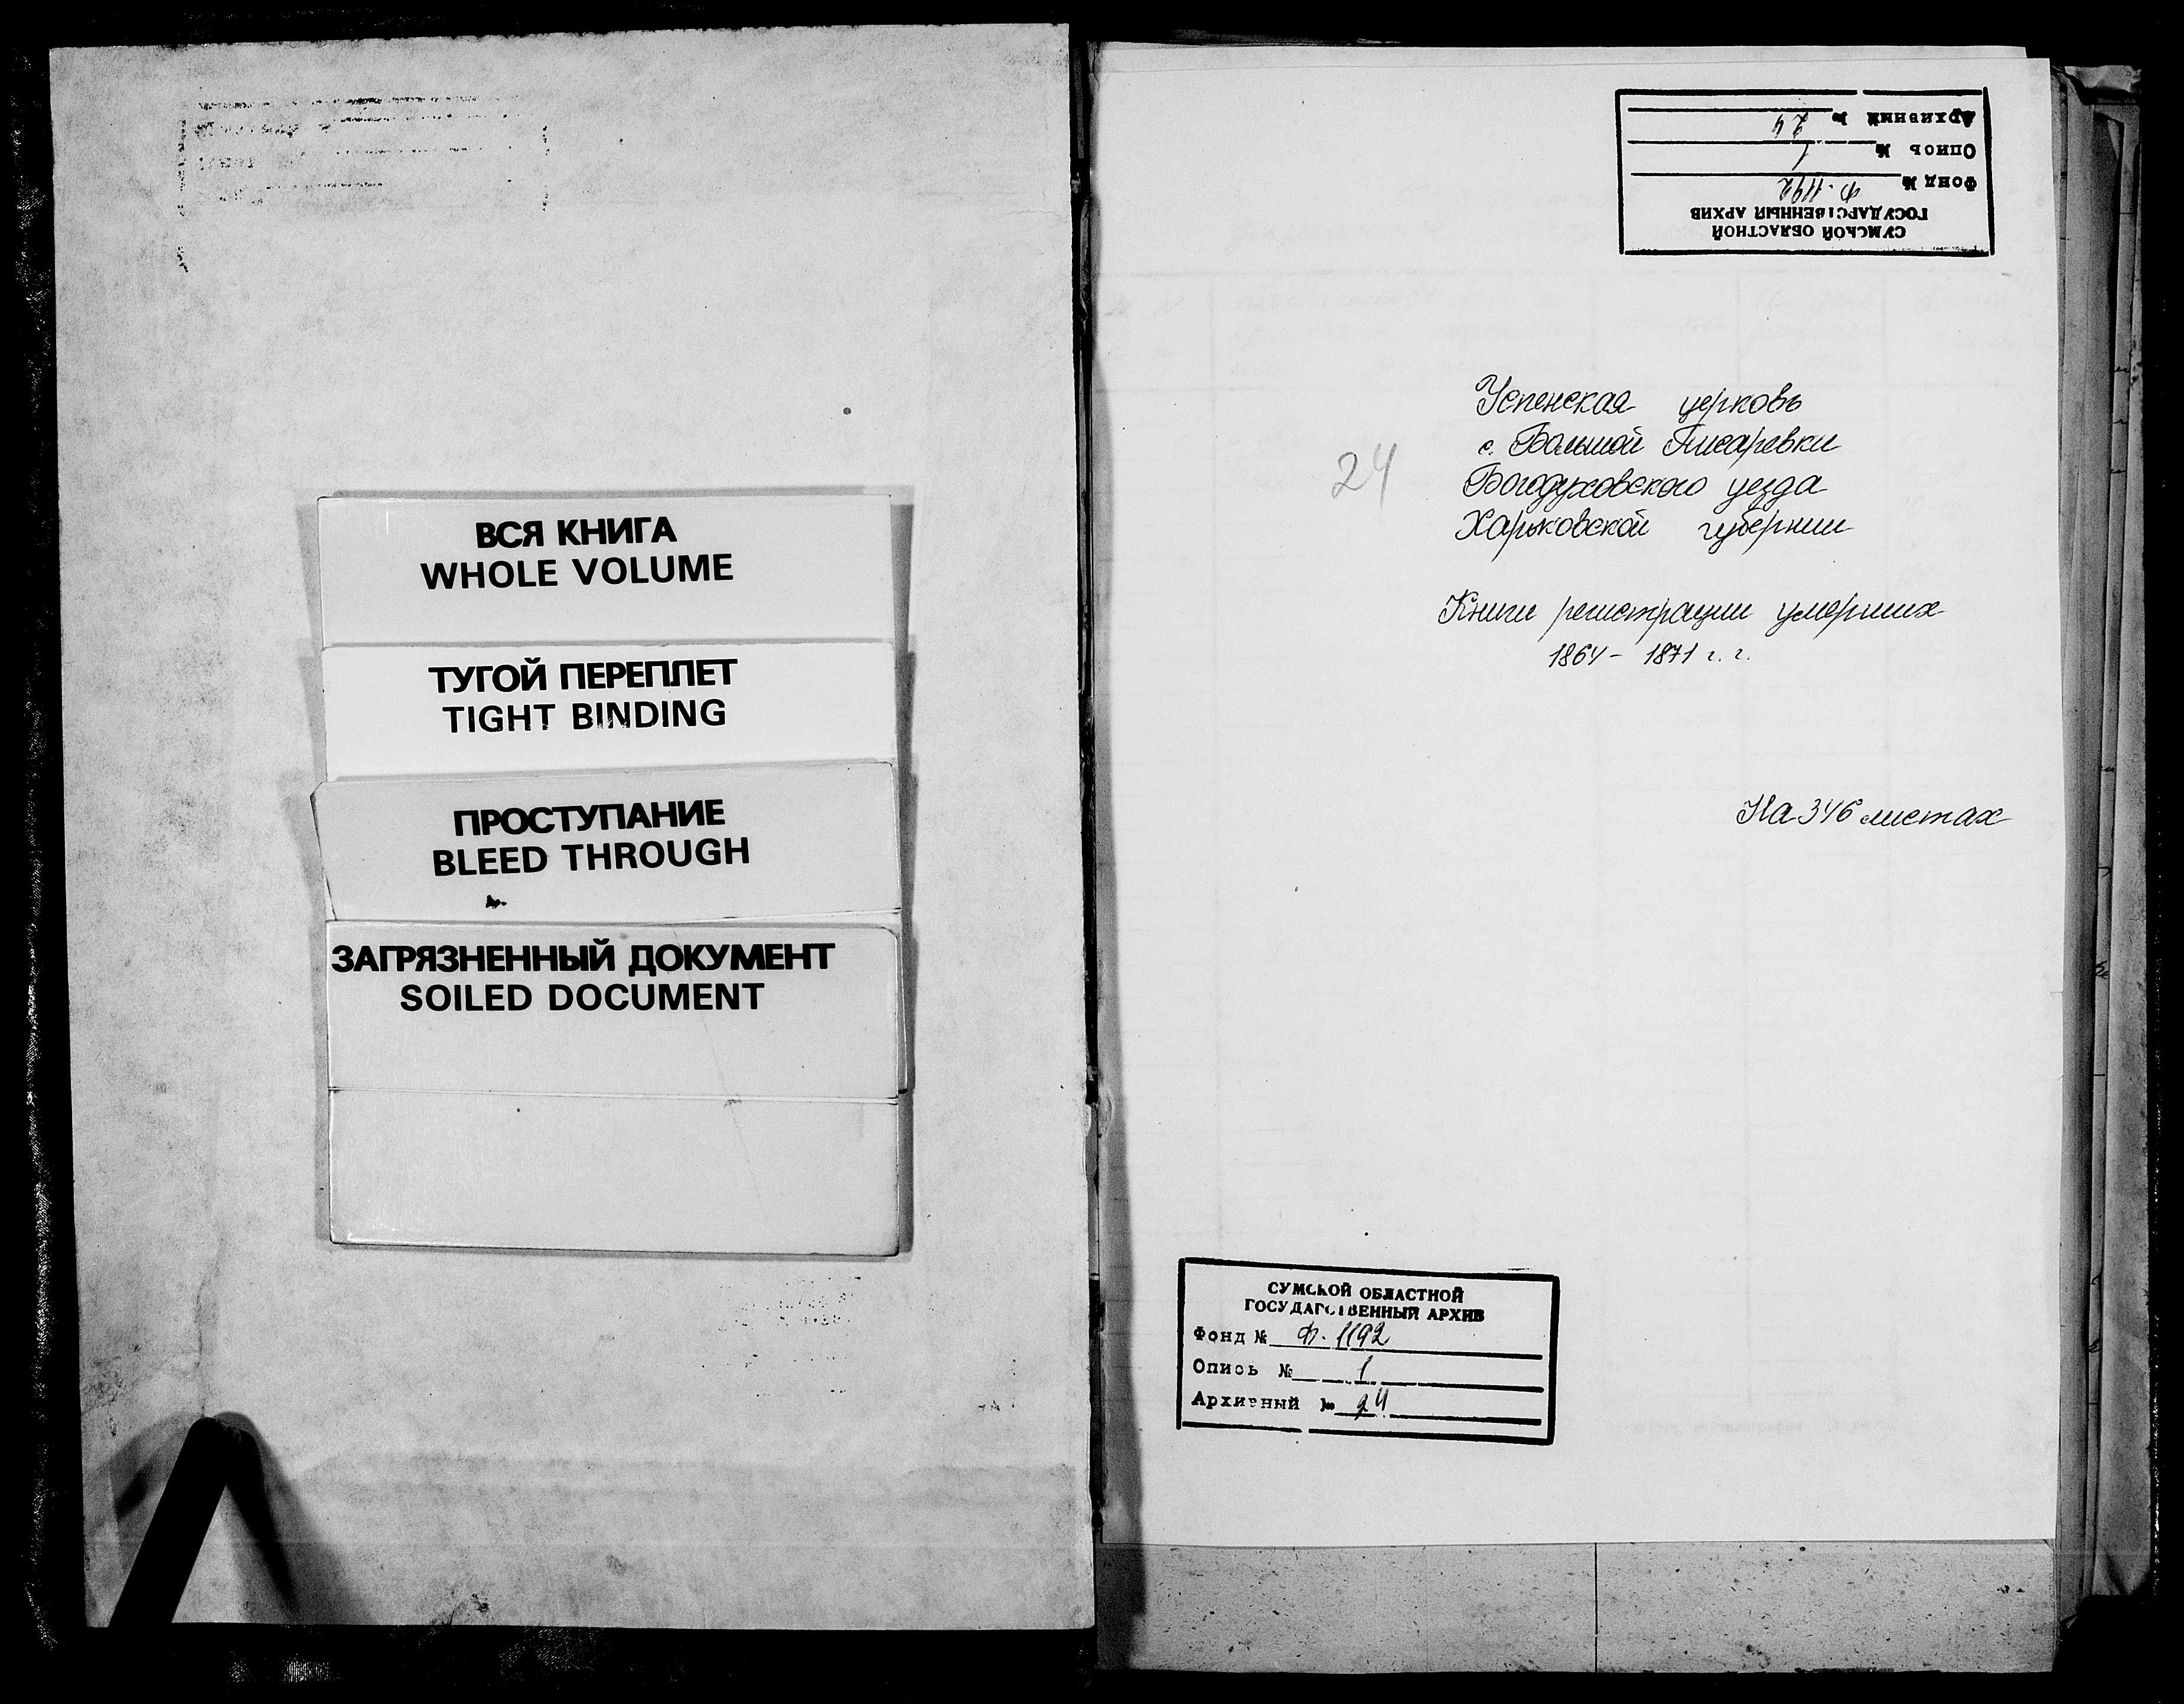 ВСЯ КНИГА
WHOLE VOLUME
ТУГОЙ ПЕРЕПЛЕТ
TIGHT BINDING
ПРОСТУПАНИЕ
BLEED THROUGH
ЗАГРЯЗНЕННЫЙ ДОКУМЕНТ
SOILED DOCUMENT
СУМСКОЙ ОБЛАСТНОЙ
ГОСУДАРСТВЕННЫЙ АРХИВ
Фонд № Ф. 1192
Опись № 1
Архивный № 24
24
Успенская церковь
с. Большой Писаревки
Богодуховского уезда
Харьковской губернии
Книги регистрации умерших
1864 - 1871 г. г.
На 346 листах
СУМСКОЙ ОБЛАСТНОЙ
ГОСУДАРСТВЕННЫЙ АРХИВ
Фонд № Ф. 1192
Опись № 1
Архивный № 24